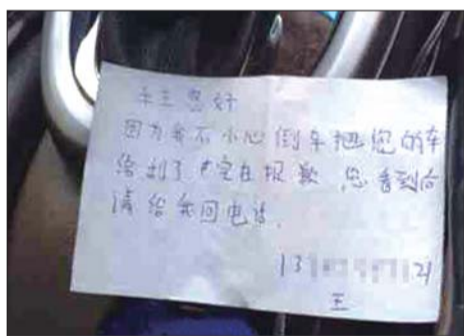 车主您好
因为我不小心倒车把您的车
给刮了 实在报歉，您看到后
请给我回电话，
13 21
王